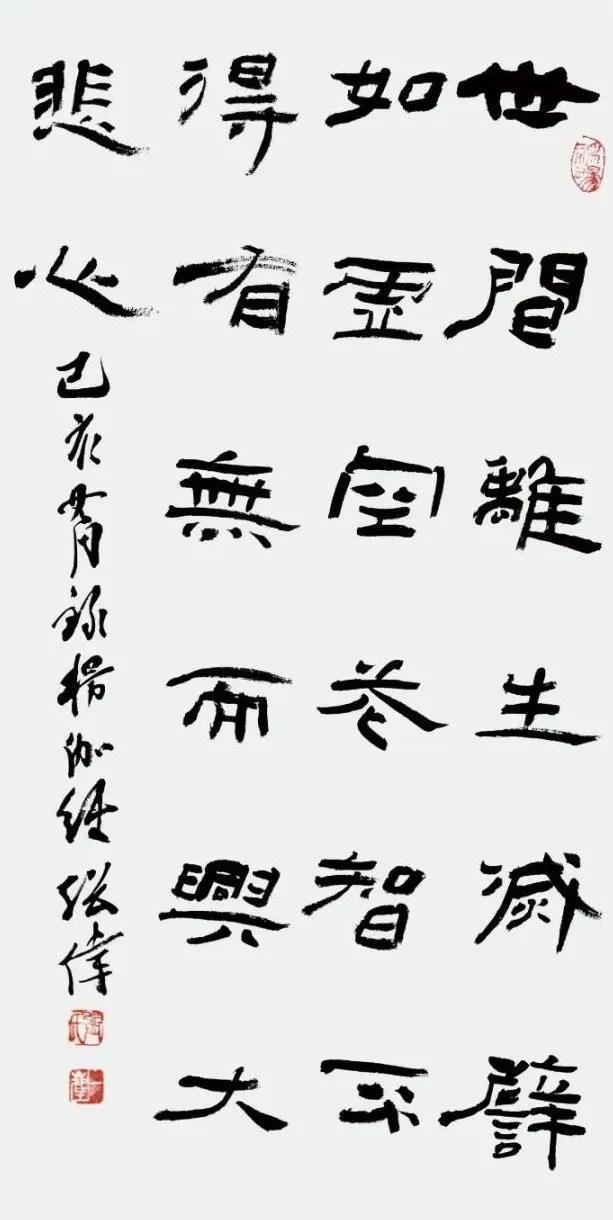 世間離生滅譬
如虛空花智不
得有無而興大
悲心
己亥録楞伽經張偉